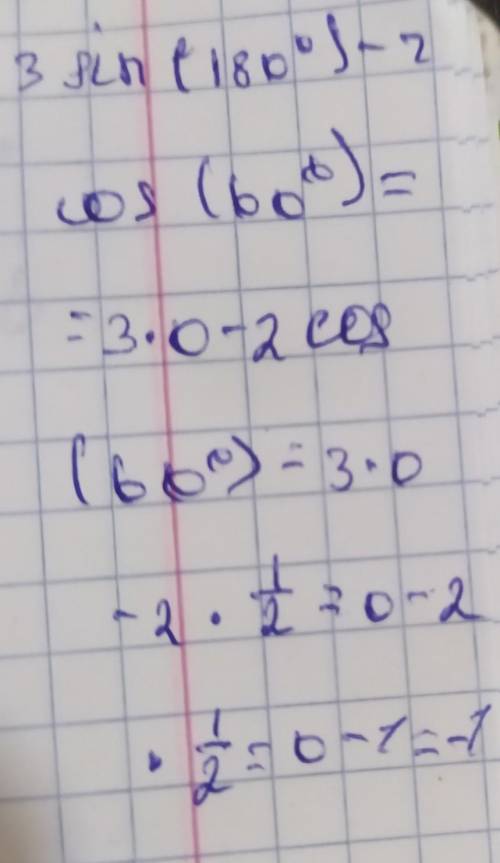 3 sin (180°) - 2
cos (60°) =
= 3 · 0 - 2 cos
(60°) = 3 · 0
- 2 · 1/2 = 0 - 2
· 1/2 = 0 - 1 = -1